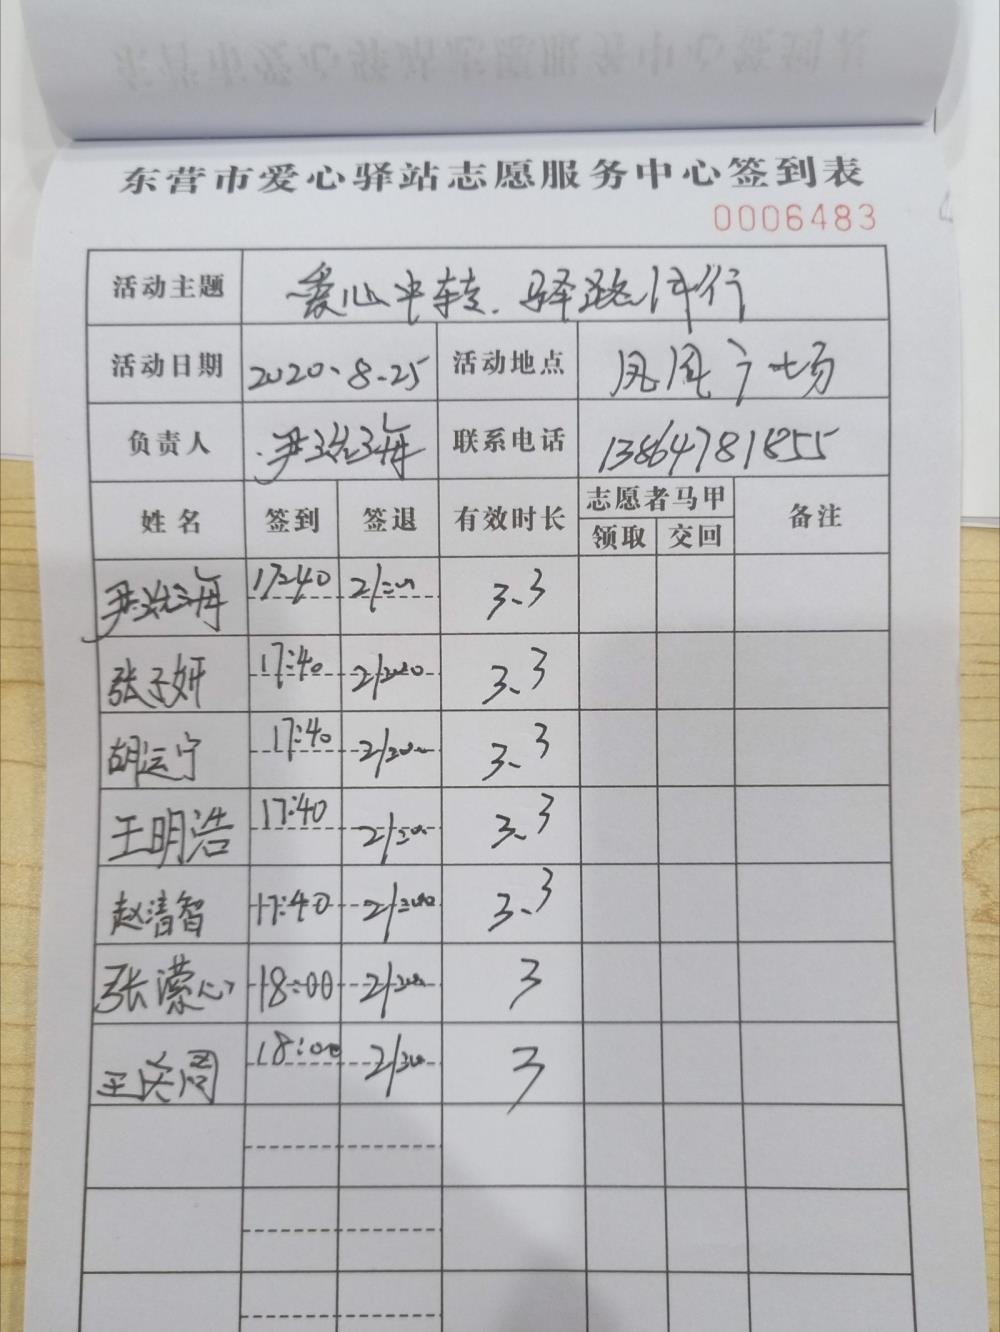 东营市爱心驿站志愿服务中心签到表
0006483
活动主题 爱心中转、驿路伴行
活动日期 2020.8.25 活动地点 凤凰广场
负责人 联系电话 13864781855
姓名 签到 签退 有效时长 志愿者马甲 备注
领取 交回
17:40 21:00 3.3
张子妍 17:40 21:00 3.3
胡运宁 17:40 21:00 3.3
王明浩 17:40 21:00 3.3
赵清智 17:40 21:00 3.3
张濛心 18:00 21:00 3
18:00 21:00 3